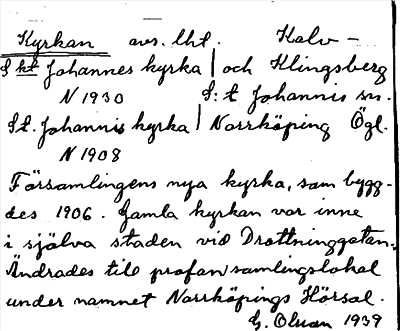 Kyrkan avs. lht. Kalv -
S:kt Johannes kyrka | och Klingsberg
N 1930 S:t Johannis sn.
S:t. Johannis kyrka | Norrköping Ögl.
N 1908
Församlingens nya kyrka, som bygg-
des 1906. Gamla kyrkan var inne
i själva staden vid Drottninggatan.
Ändrades till profan samlingslokal
under namnet Norrköpings Hörsal.
G. Olson 1939